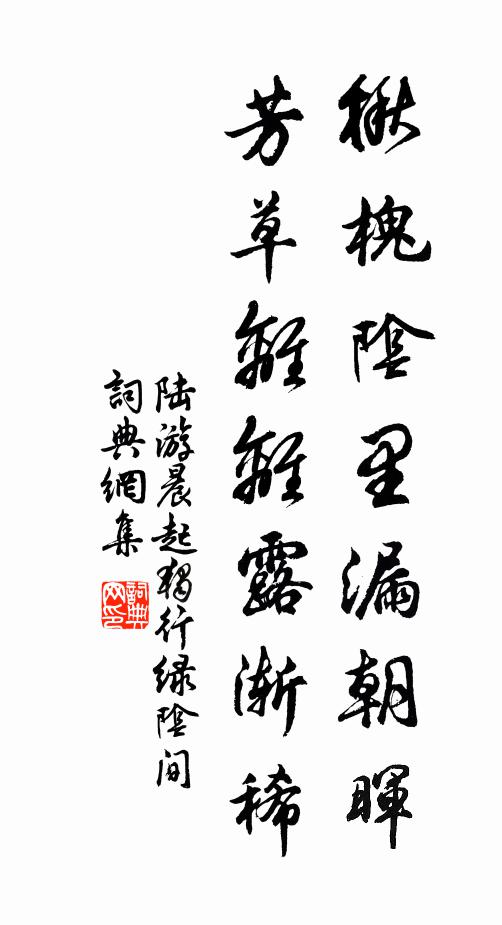 楸槐陰里漏朝暉
芳草離離露漸稀
陆游晨起獨行绿陰间
詞典網集
詞典网印